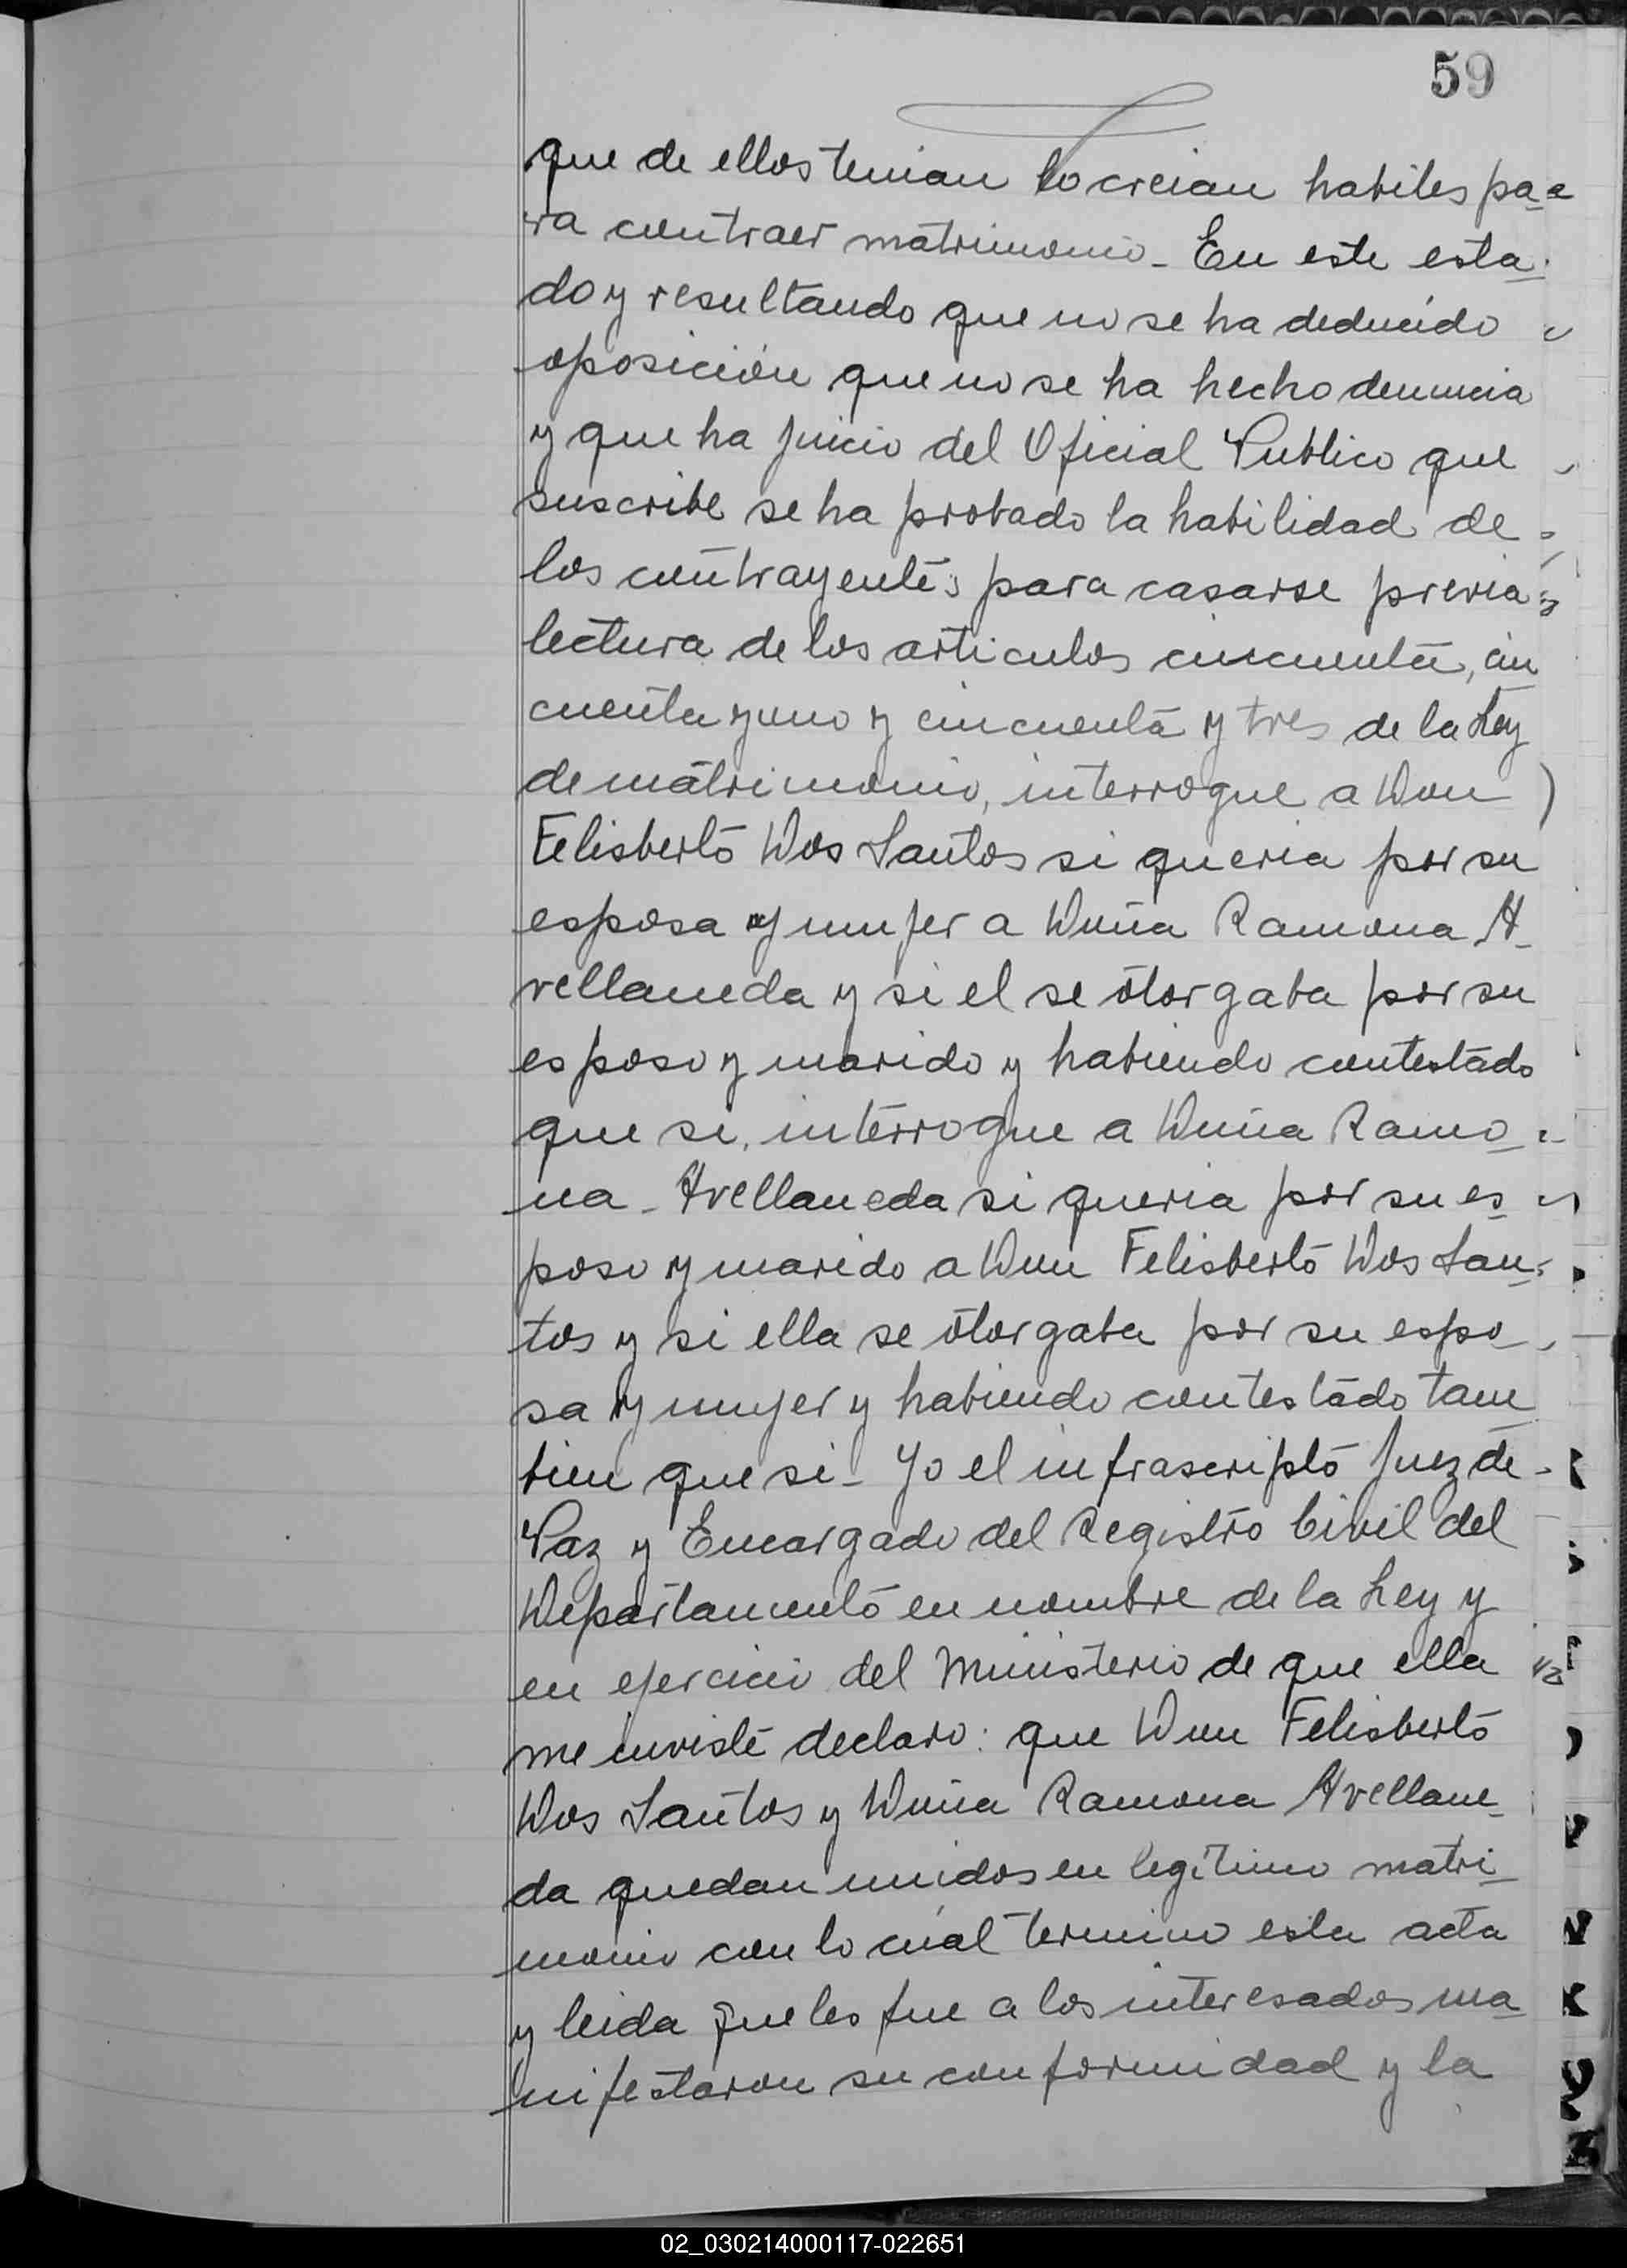 59
que de ellos tenian lo creian habiles pa-
ra contraer matrimonio - En este esta-
do y resultando que no se ha deducido
oposición que no se ha hecho denuncia
y que ha juicio del Oficial Publico que
suscribe se ha probado la habilidad de
los contrayentes para casarse previa
lectura de los articulos cincuenta, cin
cuenta y uno y cincuenta y tres de la Ley
de matrimonio, interrogue a Don
Felisberto Dos Santos si queria por su
esposa y mujer a Doña Ramona A-
vellaneda y si el se otorgaba por su
esposo y marido y habiendo contestado
que si, interrogue a Doña Ramo-
na - Avellaneda si queria por su es-
poso y marido a Don Felisberto Dos San-
tos y si ella se otorgaba por su espo-
sa y mujer y habiendo contestado tam
bien que si - Yo el infrascripto Juez de
Paz y Encargado del Registro Civil del
Departamento en nombre de la Ley y
en ejercicio del Ministerio de que ella
me inviste declaro: que Don Felisberto
Dos Santos y Doña Ramona Avellane-
da quedan unidos en legitimo matri-
monio con lo cual termino esta acta
y leida que les fue a los interesados ma-
nifestaron su conformidad y la
02_030214000117-022651